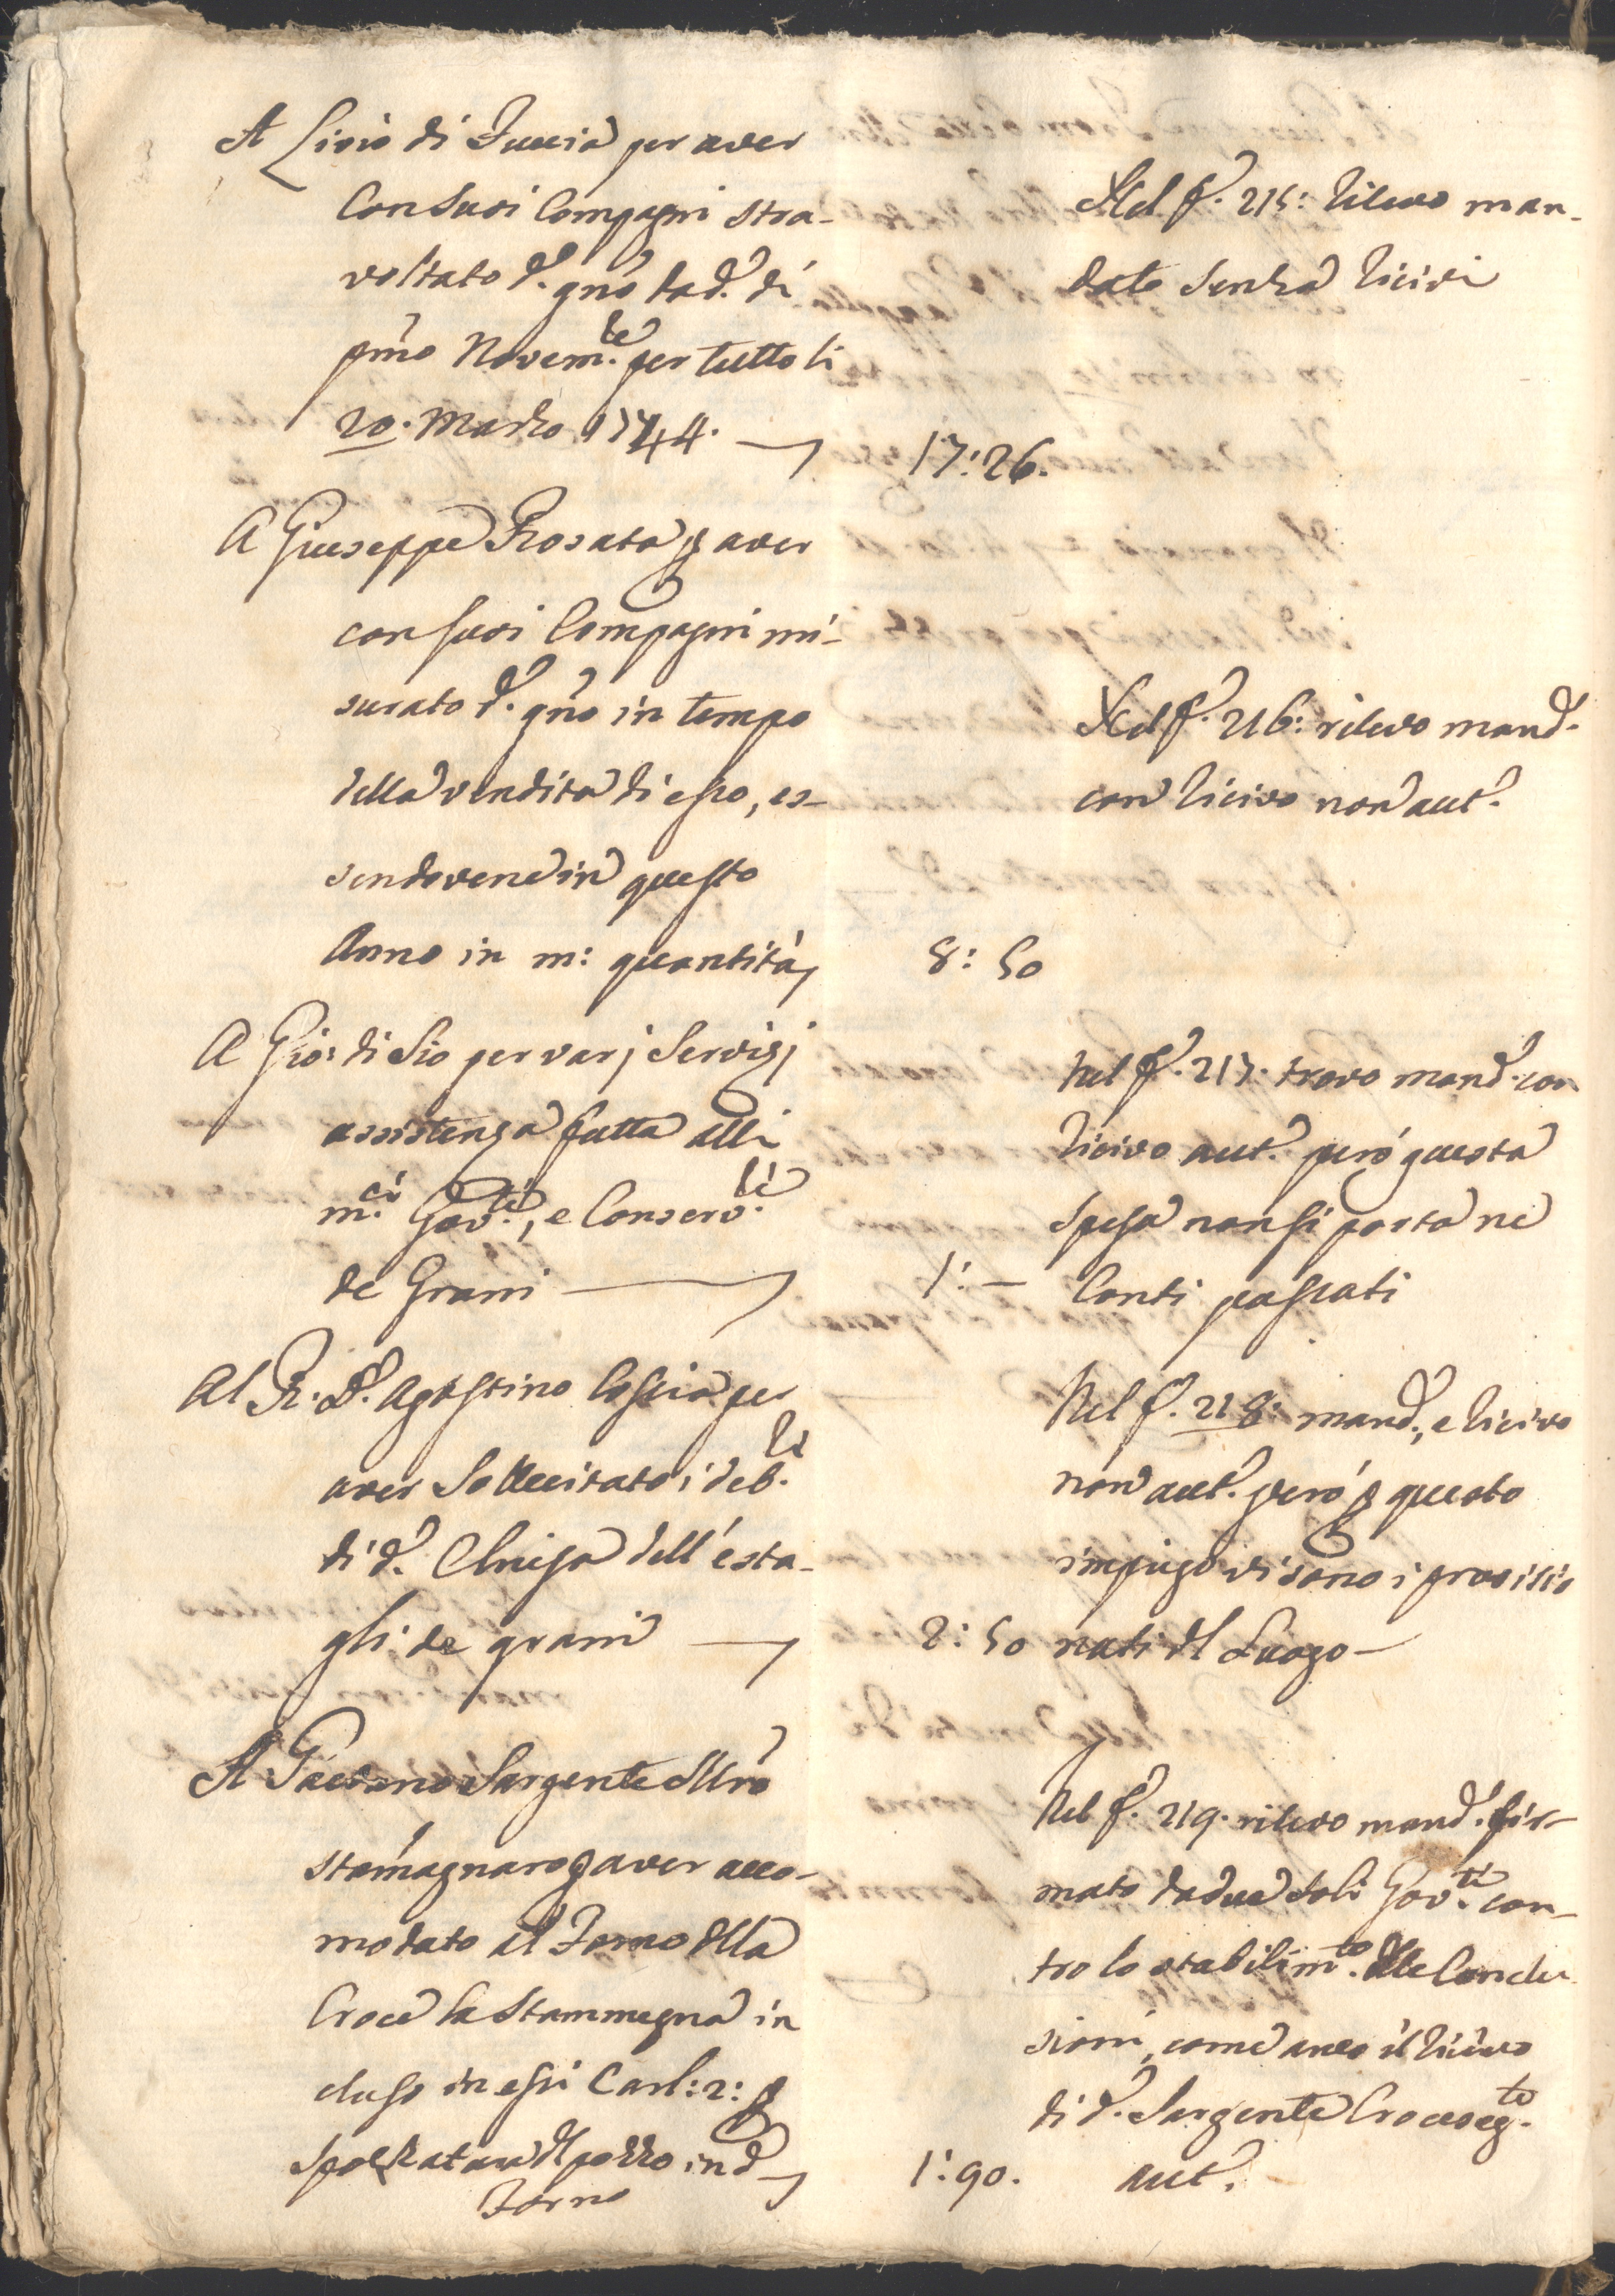 A Livio di Iuccia per aver
con suoi Compagni stra-
voltato d.º gnõ dad.º di
pmõ Novem.be per tutto li
20. Marzo 1744. — 17:26.
Nel f.º 215: rilevo man-
dato senza ricivi
A Giuseppe Rosata p aver
con suoi Compagni mi-
surato d.º gnõ in tempo
della vendita di esso, es-
sendovene in questo
Anno in m: quantità, 8:50
Nel f.º 216: rilevo mand.º
con ricivo non aut.º
A Gio: di Sio per varj Servigj
assistenza fatta alli
m.ci Gov.ti, e Conserv.ri
de Grani — 1:—
Nel f.º 217. trovo mand.º con
ricivo aut.º però questa
spesa non si porta ne
Conti passati
Al R. D. Agostino Coscia per
aver sollecitato i deb.ri
di d.ª Chiesa dell'esta-
gli de grani — 2:50
Nel f.º 218: mand.º, e ricivo
non aut.º però p questo
impiego vi sono i provisio
nati dl Luogo —
A Gaetano Sargente Mrõ
stamagnaro p aver acco-
modato al Forno dlla
Croce la stammegna in
cluso in essi Carl: 2: p
spozzatura dl pozzo in d.º
Forno 1:90.
Nel f.º 219. rilevo mand.º fir-
mato da due soli Gov.ti con-
tro lo stabilim.to dlle Conclu
sioni, come anco il ricivo
di d.º Sargente Croceseg.to
aut.º